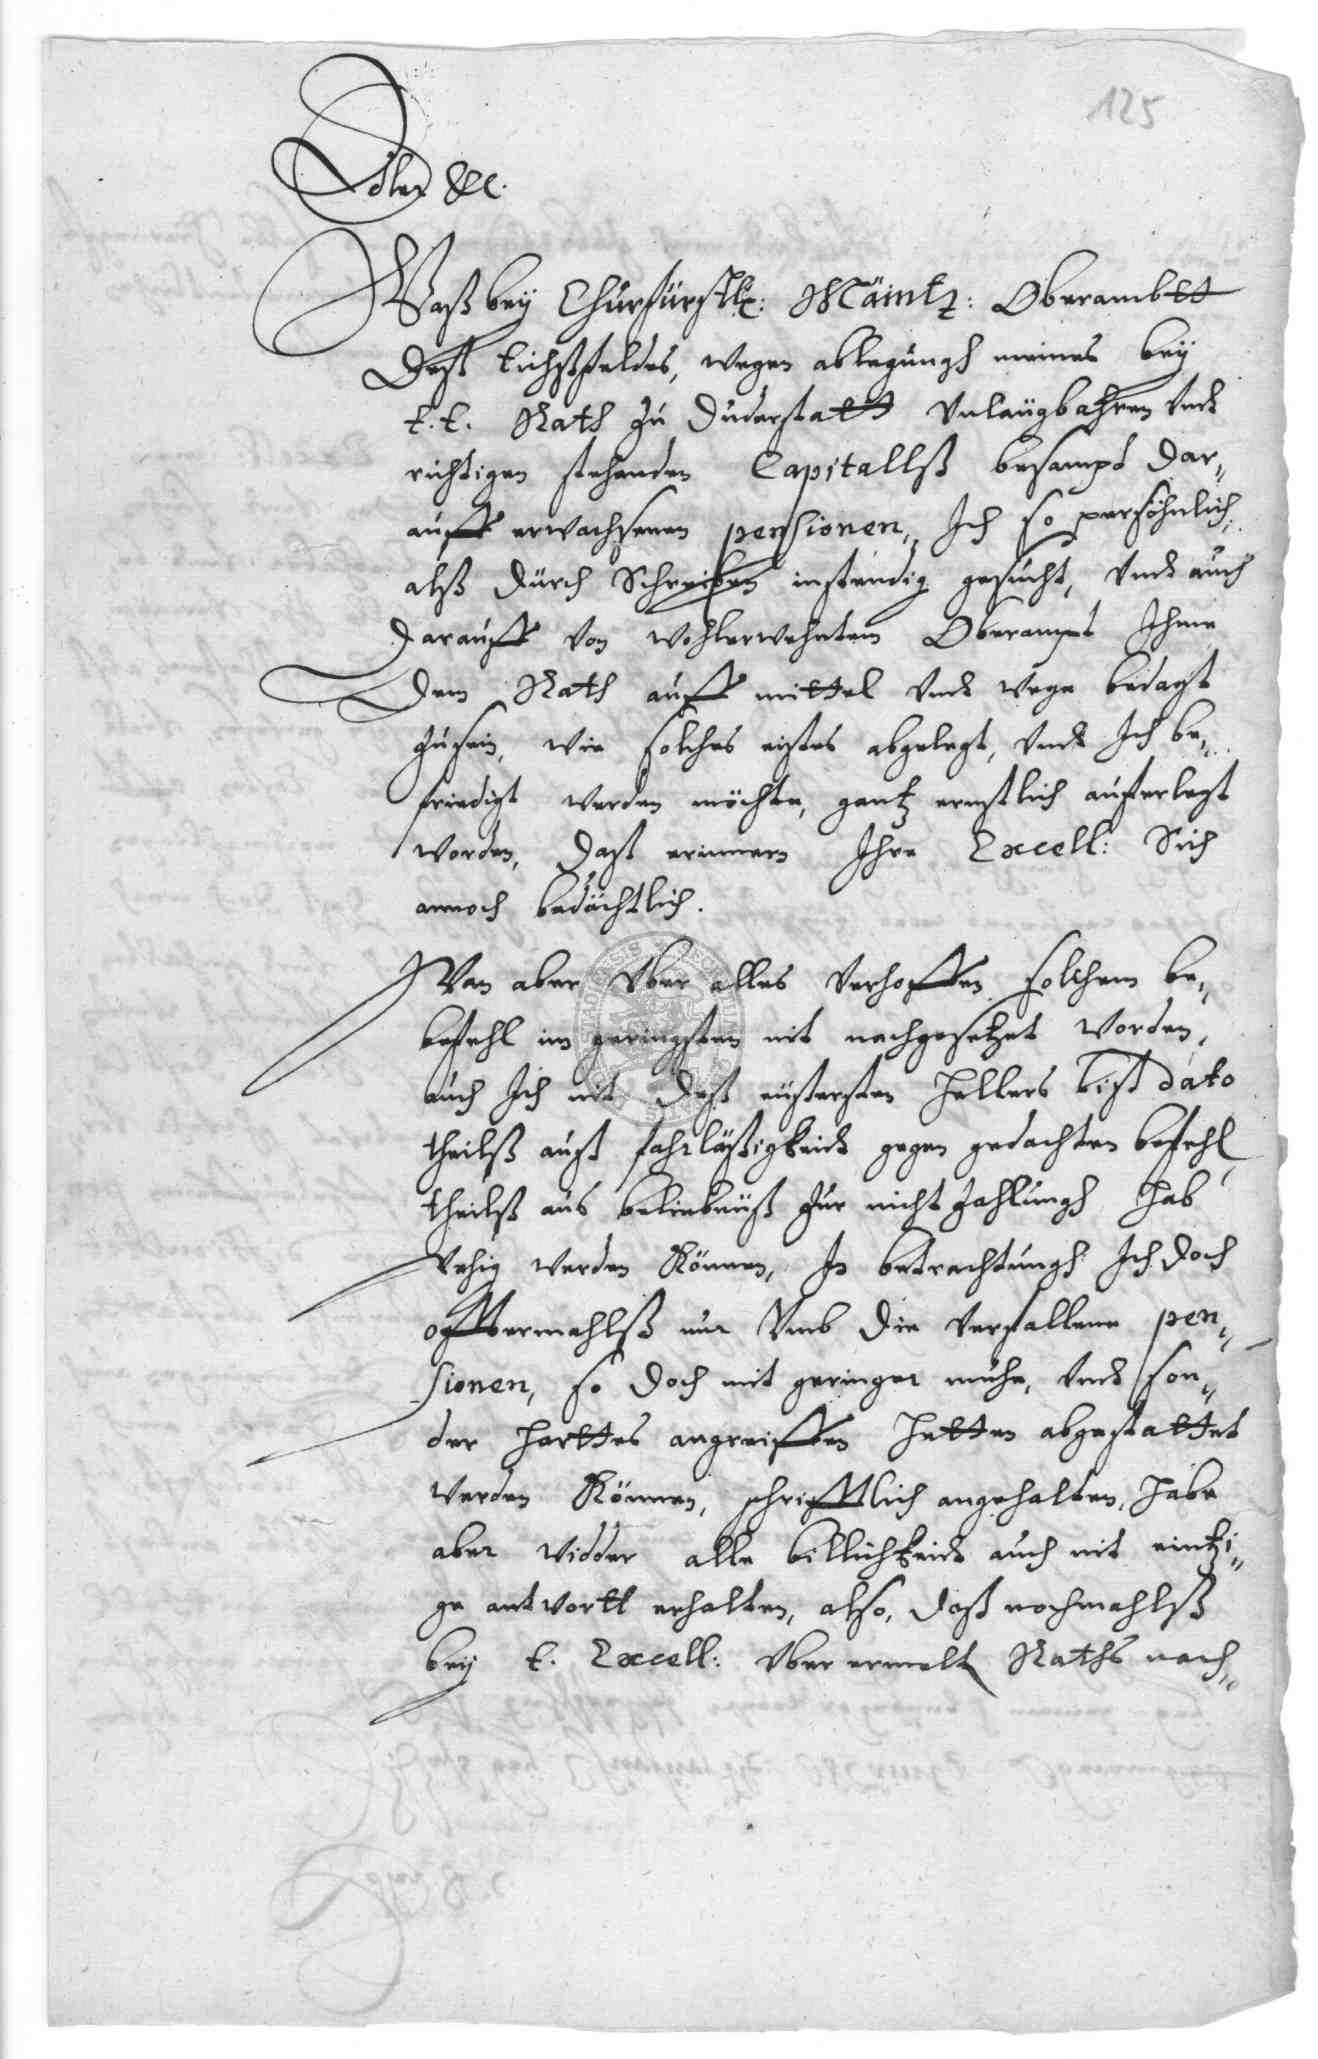 125
Edler &c.
Waß bey Churfürstl: Mäintz: Oberambtt
Deß Eichßfeldes, wegen ablegungh meines bey
E. E. Rath zu Duderstatt Unlaügbahren Undt
richtigen stehenden Capitallß besampt dar„
auff erwachsenen pensionen, Ich so persöhnlich
alß durch Schreiben instendig gesucht, Undt auch
darauff von wohlerwehntem Oberampt Ihme
dem Rath auff mittel Undt wege bedagt
zusein, wie solches erstes abgelegt, Undt Ich be„
friedigt werden möchte, gantz ernstlich aufferlegt
worden, daß erinnern Ihre Excell: Sich
annoch bedächtlich.
Wan aber Uber alles verhoffen solchem be„
befehl im geringsten nit nachgesetzet worden,
auch Ich nit deß eüßersten hellers biß dato
theilß auß fahrläßigkeidt gegen gedachten befehl
theilß aus beliebnüß zur nicht zahlungh hab
vehig werden können, In betrachtungh Ich doch
offtermahlß nur Umb die verfallene pen„
sionen, so doch mit geringer mühe, Undt son„
der harttes angreiffen hetten abgestattet
werden können, schrifftlich angehalten, habe
aber widder alle billichkeidt auch nit eintzi„
ge antwortt erhalten, also, daß nochmahlß
bey E. Excell: Uber ermelt Raths nach„